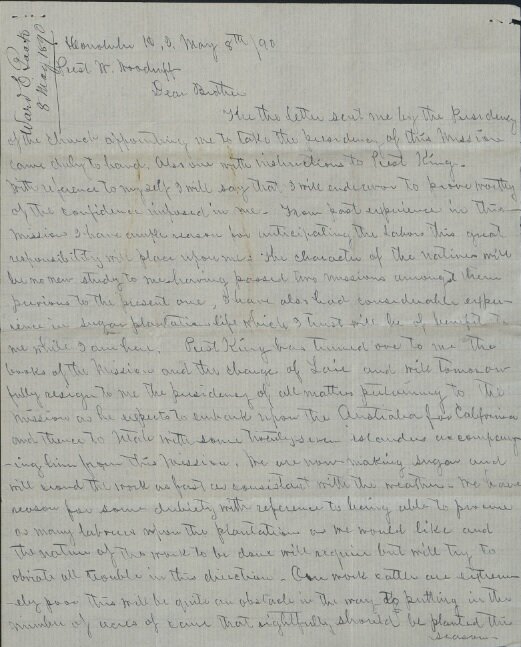 Ward E Pack
8 May 1890
Honolulu H. I. May 8th / 90
Prest W. Woodruff
Dear Brother
The letter sent me by the Presidency
of the Church appointing me to take the presidency of this Mission
came duly to hand, also one with instructions to Prest King.
With reference to myself I will say that I will endeavor to prove worthy
of the confidence imposed in me. From past experience in this
Mission I have ample reason for anticipating the labors this great
responsibility will place upon me. The character of the natives will
be no new study to me having passed two missions amongst them
previous to the present one, I have also had considerable expe-
rience in sugar plantation life which I trust will be of benefit to
me while I am here. Prest King has turned over to me the
books of the Mission and the charge of Laie and will tomorrow
fully resign to me the presidency of all matters pertaining to the
mission as he expects to embark upon the Australia for California
and thence to Utah with some twenty seven islanders accompany-
-ing him from this Mission. We are now making sugar and
will crowd the work as fast as consistant with the weather. We have
reason for some with reference to being able to procure
as many laborers upon the plantation as we would like and
the nature of the work to be done will require but will try to
obviate all trouble in this direction. Our work cattle are extrem-
-ely poor this will be quite an obstacle in the way to putting in the
number of acres of cane that rightfully should be planted this
season.